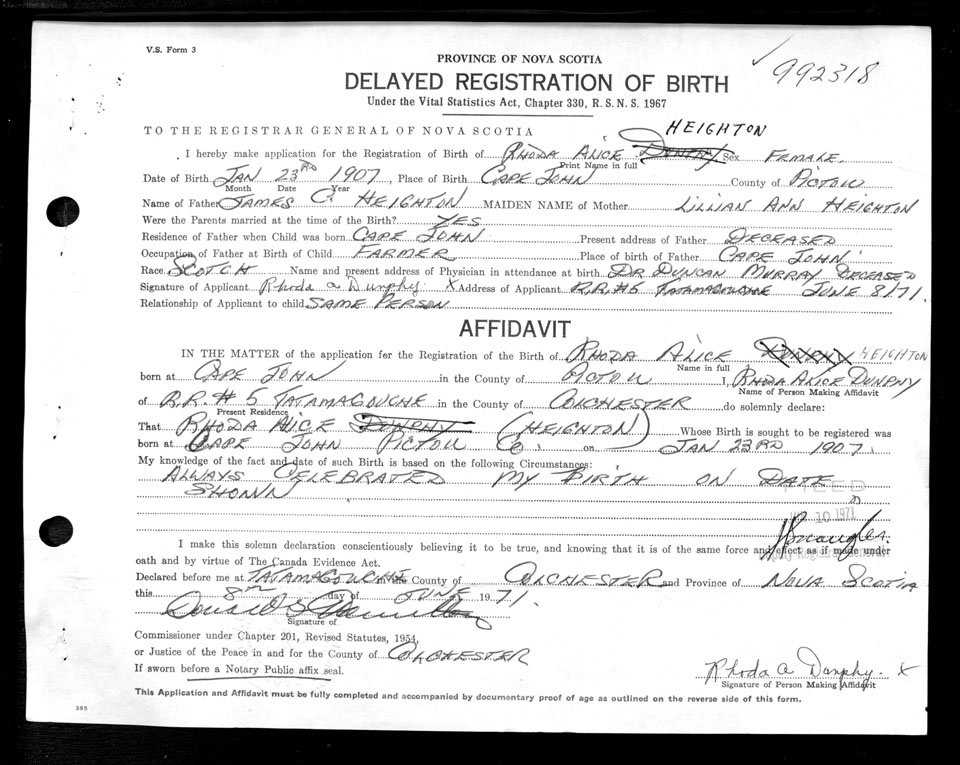 V.S. Form 3
992318
PROVINCE OF NOVA SCOTIA
DELAYED REGISTRATION OF BIRTH
Under the Vital Statistics Act, Chapter 330, R. S. N. S. 1967
TO THE REGISTRAR GENERAL OF NOVA SCOTIA
HEIGHTON
I hereby make application for the Registration of Birth of RHODA ALICE DUNPHY Sex FEMALE.
Print Name in full
Date of Birth JAN 23RD 1907, Place of Birth CAPE JOHN County of PICTOU
Month Date Year
Name of Father JAMES C. HEIGHTON MAIDEN NAME of Mother LILLIAN ANN HEIGHTON
Were the Parents married at the time of the Birth? YES
Residence of Father when Child was born CAPE JOHN Present address of Father DECEASED
Occupation of Father at Birth of Child FARMER Place of birth of Father CAPE JOHN
Race SCOTCH Name and present address of Physician in attendance at birth DR DUNCAN MURRAY DECEASED
Signature of Applicant Rhoda A Dunphy. X Address of Applicant R.R.#5 TATAMAGOUCHE JUNE 8/71.
Relationship of Applicant to child SAME PERSON
AFFIDAVIT
IN THE MATTER of the application for the Registration of the Birth of RHODA ALICE DUNPHY HEIGHTON
Name in full
born at CAPE JOHN in the County of PICTOU I, RHODA ALICE DUNPHY
Name of Person Making Affidavit
of R.R.#5 TATAMAGOUCHE in the County of COLCHESTER do solemnly declare:
Present Residence
That RHODA ALICE DUNPHY (HEIGHTON) Whose Birth is sought to be registered was
born at CAPE JOHN PICTOU CO. on JAN 23RD 1907.
My knowledge of the fact and date of such Birth is based on the following Circumstances:
ALWAYS CELEBRATED MY BIRTH ON DATE
SHOWN
FILED
10 1971
I make this solemn declaration conscientiously believing it to be true, and knowing that it is of the same force and effect as if made under
oath and by virtue of The Canada Evidence Act.
Declared before me at TATAMAGOUCHE County of COLCHESTER and Province of NOVA SCOTIA
this 8TH day of JUNE 1971.
Signature of
Commissioner under Chapter 201, Revised Statutes, 1954,
or Justice of the Peace in and for the County of COLCHESTER
If sworn before a Notary Public affix seal.
Rhoda A Dunphy X
Signature of Person Making Affidavit
This Application and Affidavit must be fully completed and accompanied by documentary proof of age as outlined on the reverse side of this form.
385